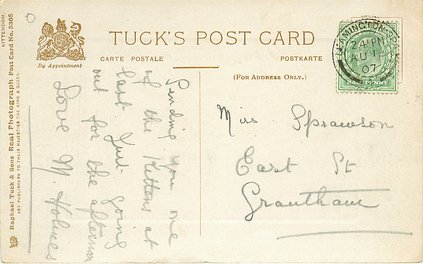 TUCK'S POST CARD
CARTE POSTALE
POSTKARTE
(FOR ADDRESS ONLY.)
By Appointment
KITTENDOM.
Raphael Tuck & Sons Real Photograph Post Card No. 5305
ART PUBLISHERS TO THEIR MAJESTIES THE KING & QUEEN.
24 IN
AU 11
07
Sending you one
of the Kittens at
last Just going
out for the afternoon
Love M. Holmes
Miss Sprawson
East St
Grantham